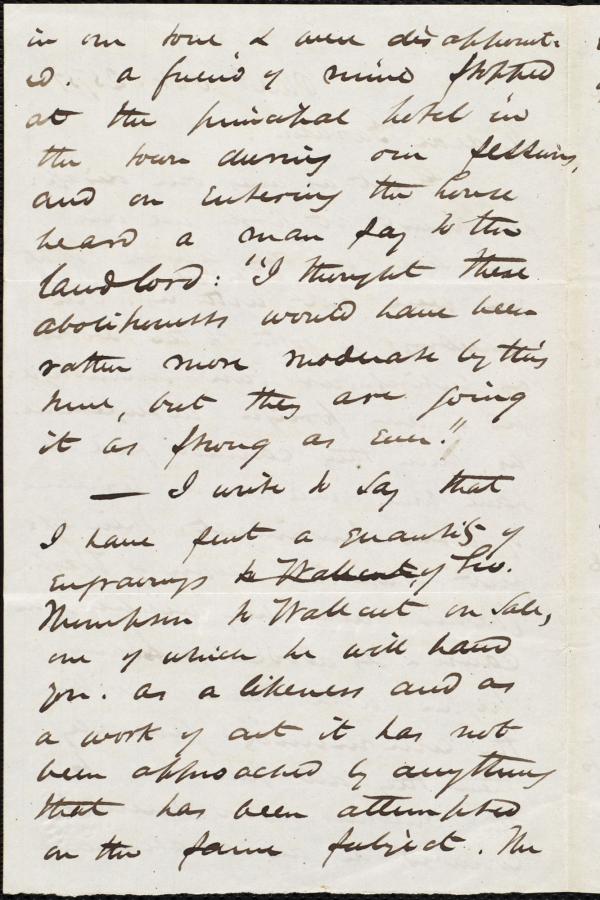 in our tone, & were disappoint-
ed. a friend of mine stopped
at the principal hotel in
the town during our sessions,
and on entering the house
heard a man say to the
landlord: "I thought these
abolitionists would have been
rather more moderate by this
time, but they are going
it as strong as ever."
— I write to say that
I have sent a quantity of
engravings to Wallcut, of Geo.
Thompson to Wallcut on sale,
one of which he will hand
you. as a likeness and as
a work of art it has not
been approached by anything
that has been attempted
on the same subject. The